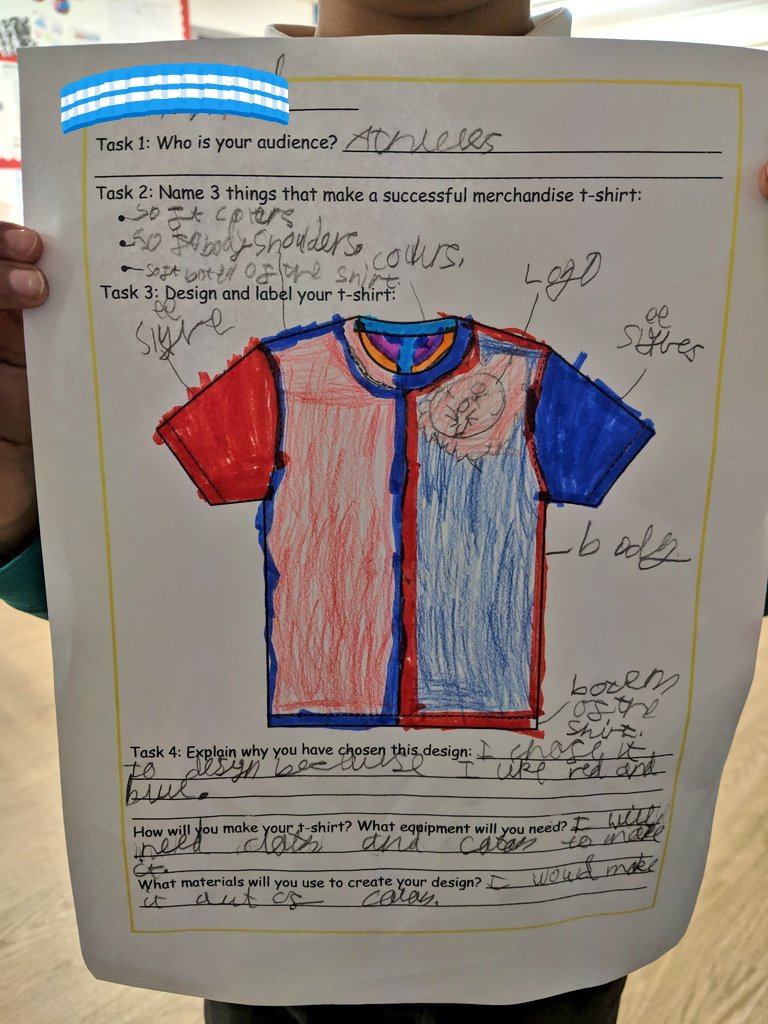 Task 1: Who is your audience? Athletes
Task 2: Name 3 things that make a successful merchandise t-shirt:
• soft colers
• body shoulders.
• soft of the shirt.
colurs.
Task 3: Design and label your t-shirt:
Logo
body
botem
of the
shirt.
Task 4: Explain why you have chosen this design: I chose it
to design because I like red and
blue.
How will you make your t-shirt? What equipment will you need? I will
need cloth and to make
it.
What materials will you use to create your design? I would make
it out of